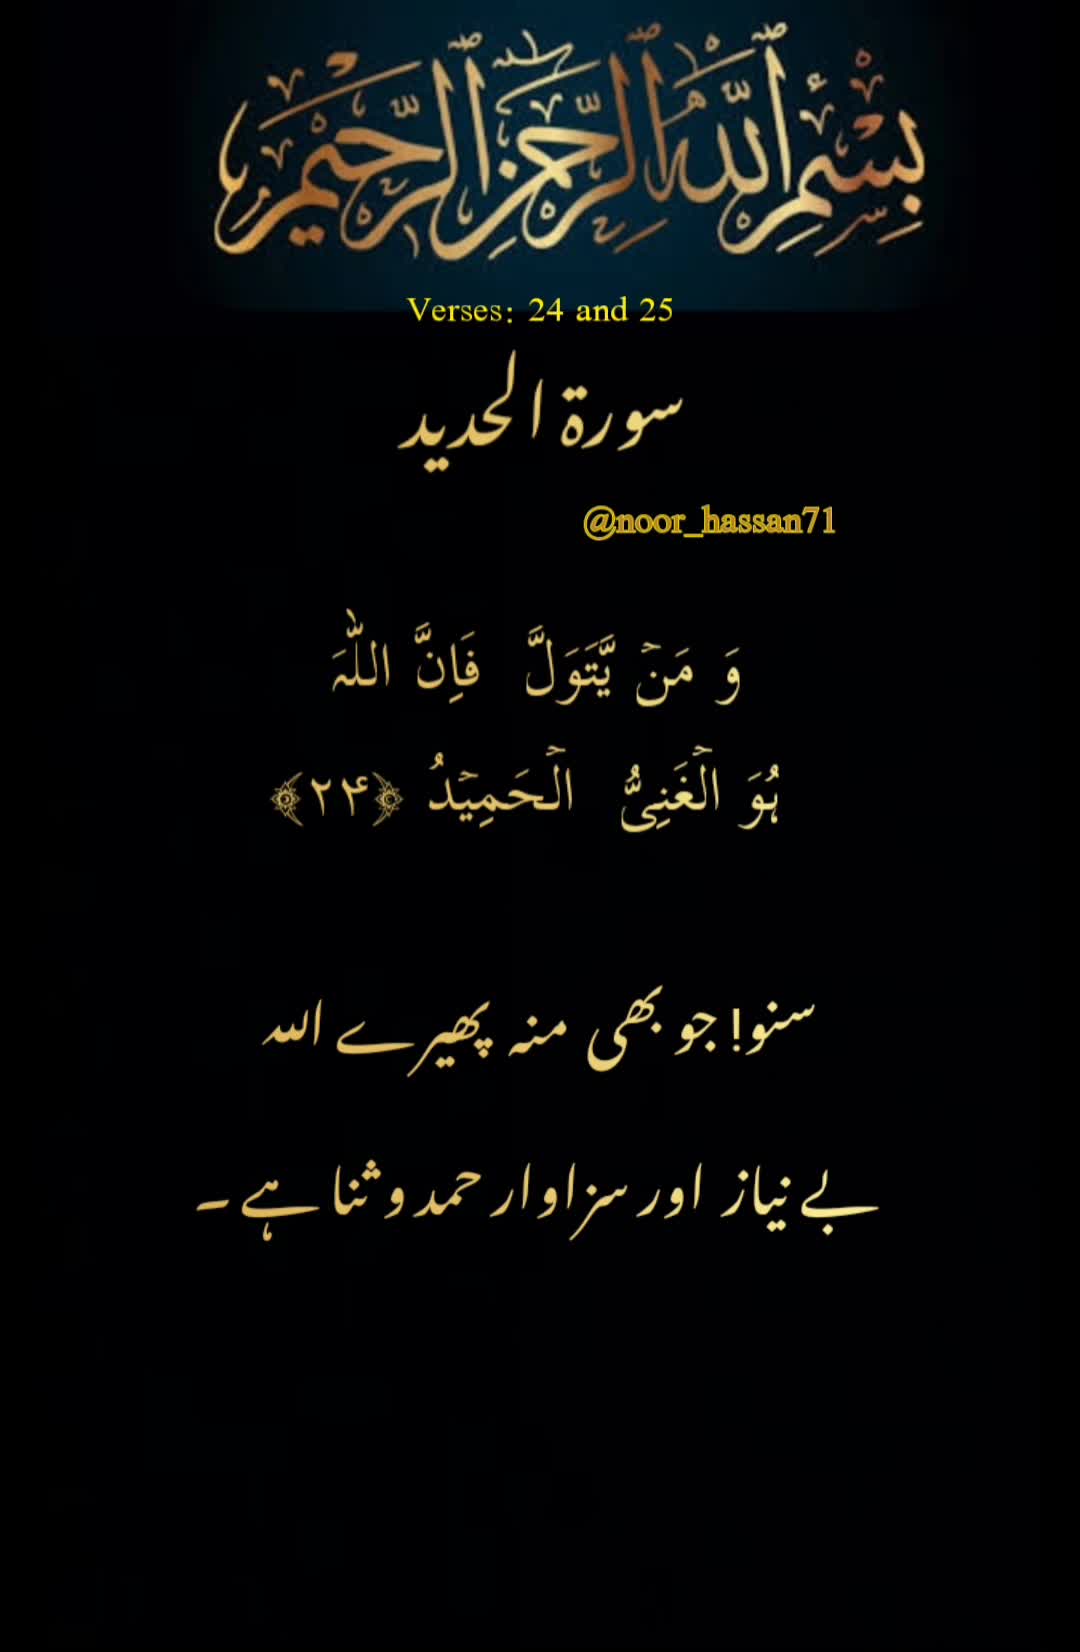 بِسْمِ ٱللَّهِ ٱلرَّحْمَٰنِ ٱلرَّحِيمِ
Verses: 24 and 25
سورة الحدید
@noor_hassan71
وَ مَنۡ یَّتَوَلَّ فَاِنَّ اللّٰہَ
ہُوَ الۡغَنِیُّ الۡحَمِیۡدُ ﴿۲۴﴾
سنو! جو بھی منہ پھیرے اللہ
بے نیاز اور سزاوار حمد و ثنا ہے ۔